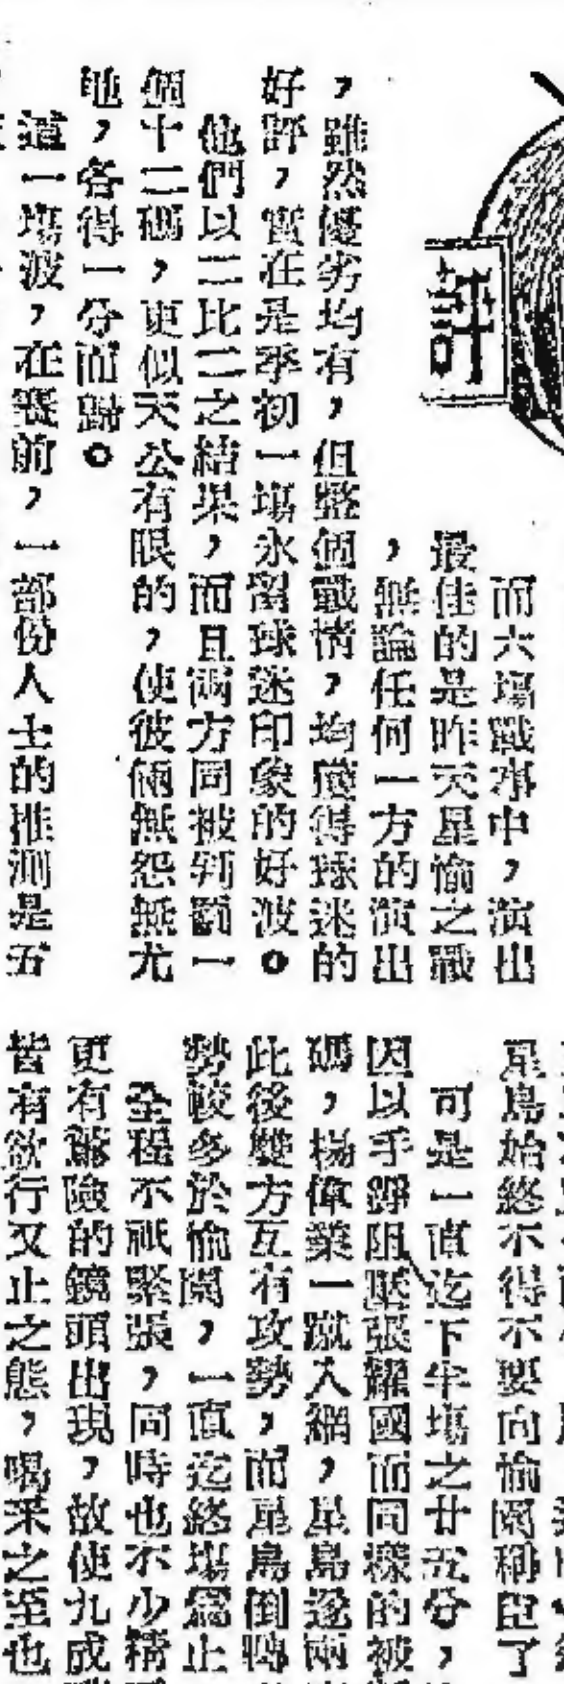 評
而六場戰事中，演出
最佳的是昨天星愉之戰
，無論任何一方的演出
，雖然優劣均有，但整個戰情，均獲得球迷的
好評，實在是季初一場永留球迷印象的好波。
他們以二比二之結果，而且兩方同被判罰一
個十二碼，更似天公有眼的，使彼倆無怨無尤
地，各得一分而歸。
這一場波，在賽前，一部份人士的推測是五
星島始終不得不要向愉園稱臣了
可是一直迄下半場之廿五分，
因以手球阻張耀國而同樣的被
碼，楊偉業一蹴入網，星島遂兩
此後雙方互有攻勢，而星島倒
勢較多於愉園，一直迄終場為止
全程不祇緊張，同時也不少精
更有驚險的鏡頭出現，故使九成
皆有欲行又止之態，喝采之至也